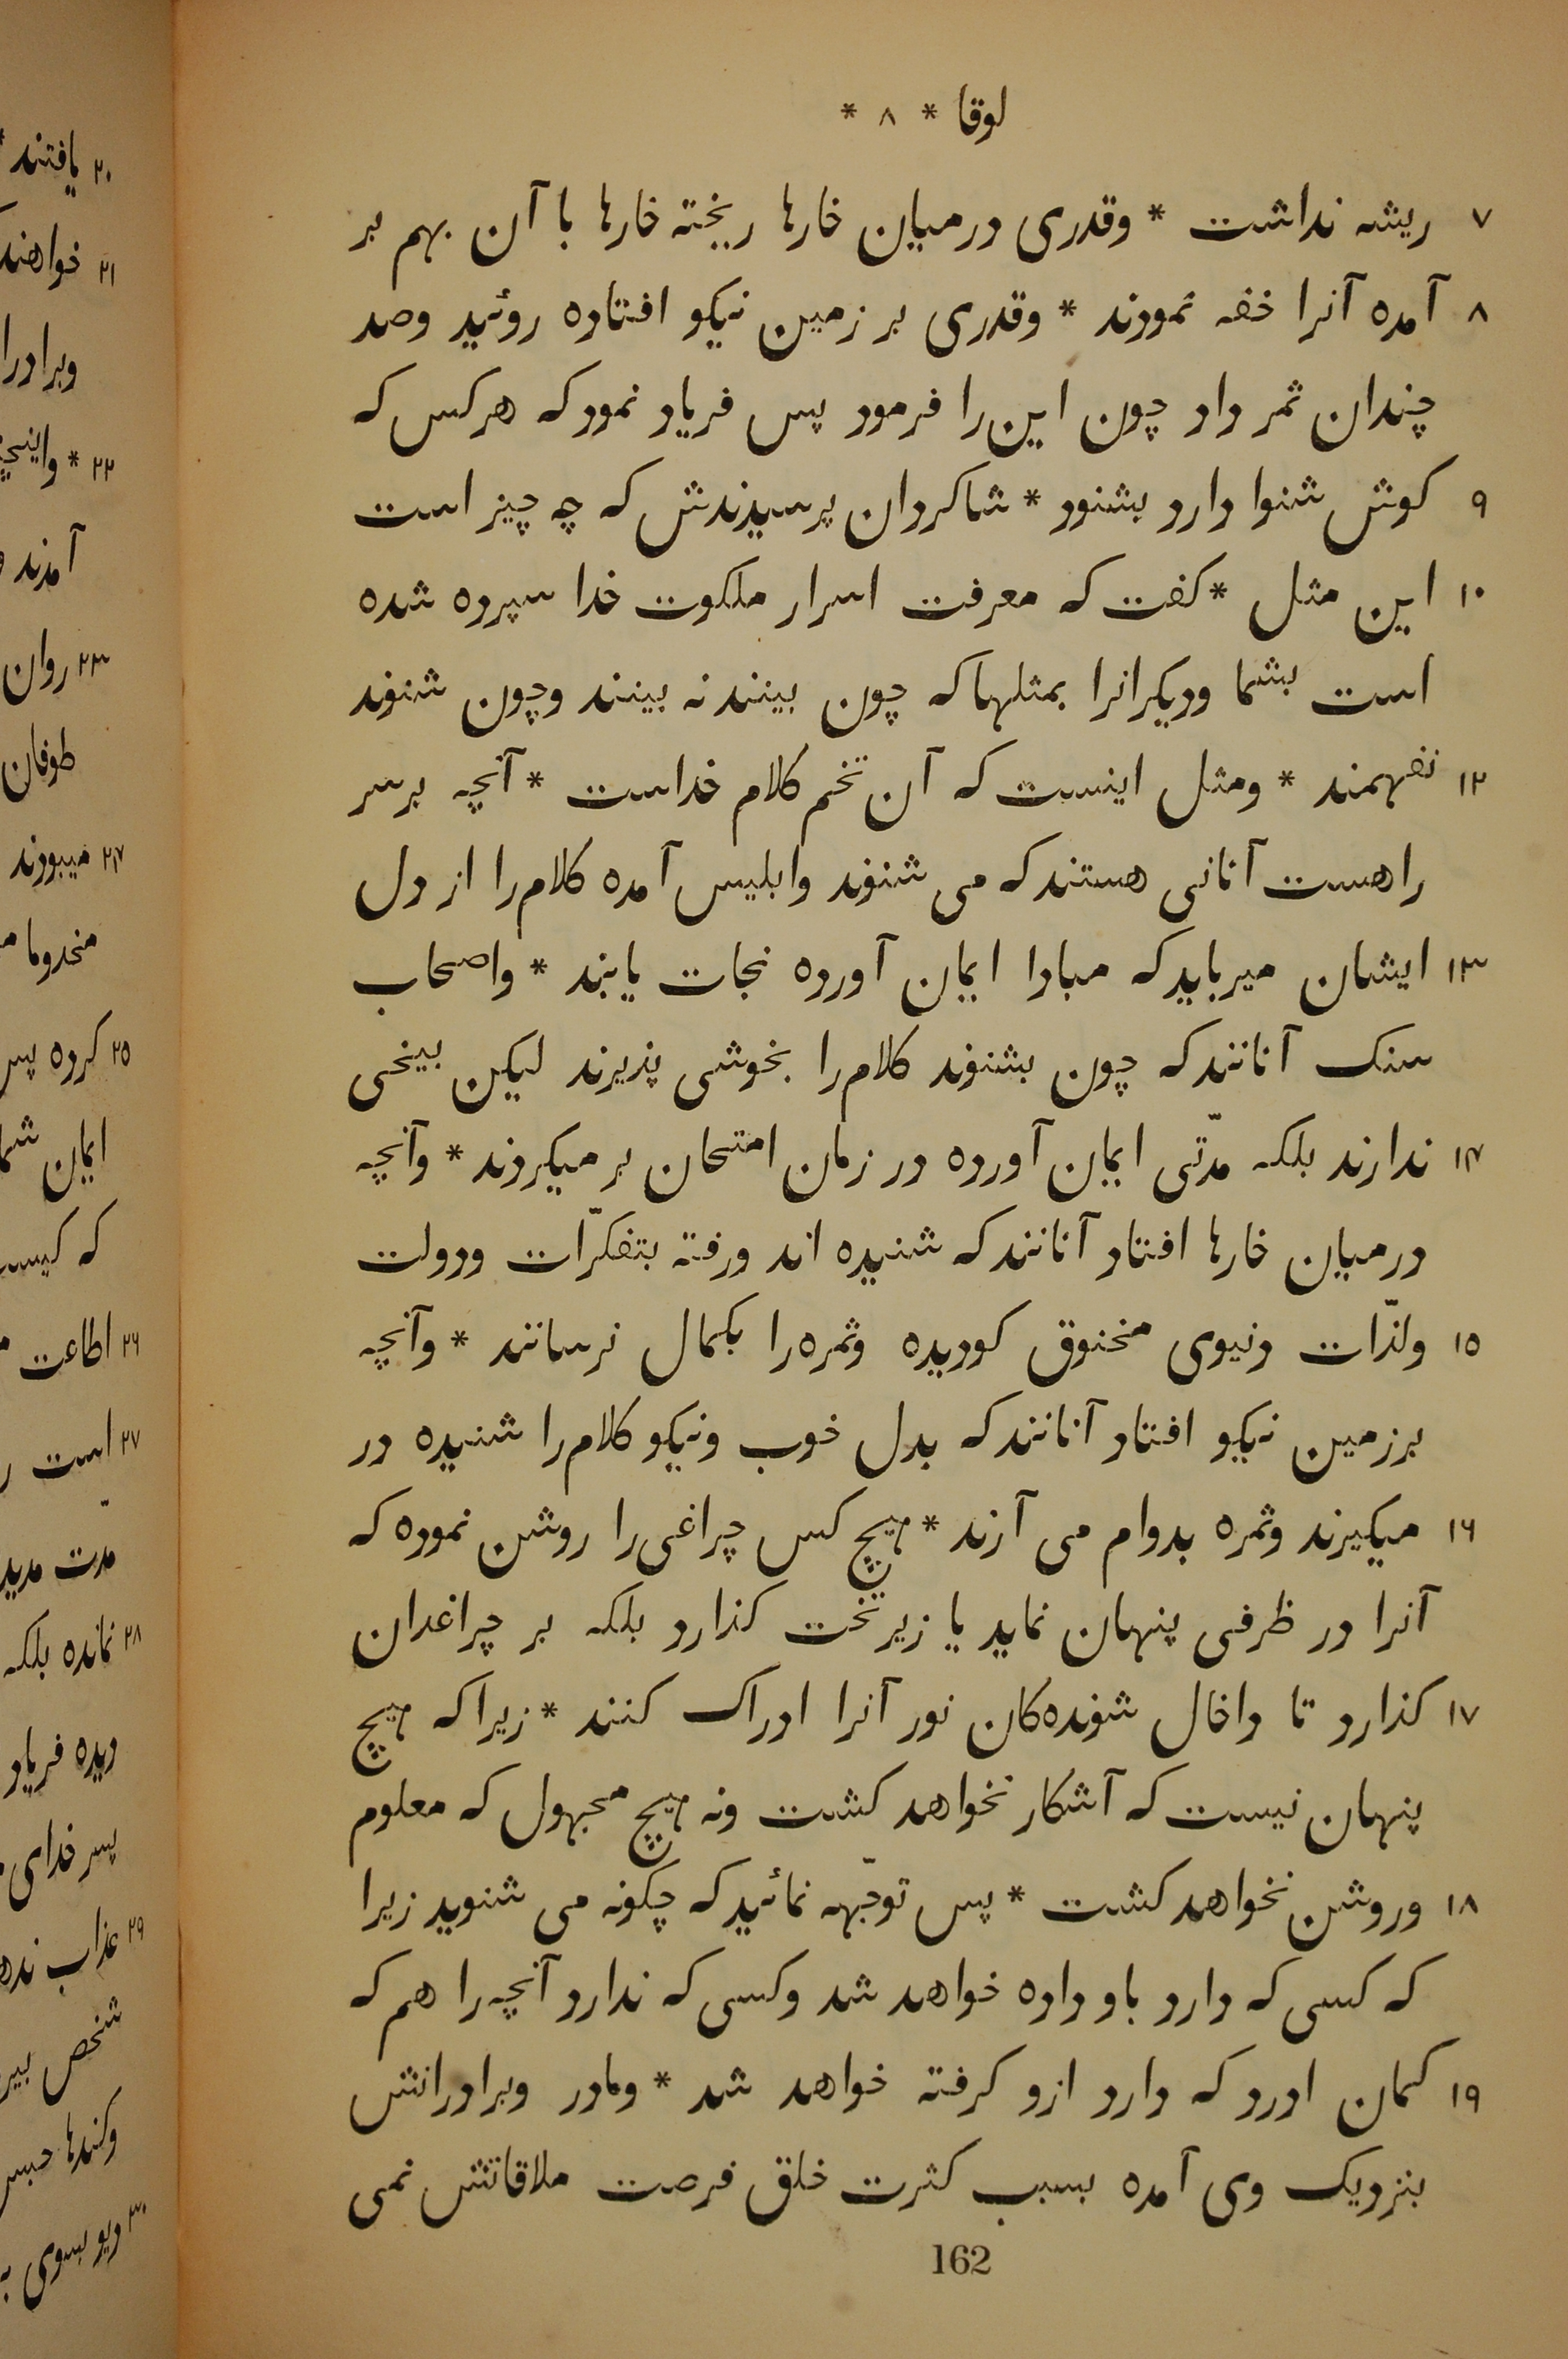 لوقا * ٨ *
٧ ریشه نداشت * وقدری درمیان خارها ریخته خارها با آن بهم بر
٨ آمده آنرا خفه نمودند * وقدری بر زمین نیکو افتاده روئید وصد
چندان ثمر داد چون این را فرمود پس فریاد نمود که هرکس که
٩ کوش شنوا دارد بشنود * شاکردان پرسیدندش که چه چیز است
١٠ این مثل * کفت که معرفت اسرار ملکوت خدا سپرده شده
است بشما ودیکرانرا بمثلها که چون بینند نه بینند وچون شنوند
١٢ نفهمند * ومثل اینست که آن تخم کلام خداست * آنچه برسر
راهست آنانی هستند که می شنوند وابلیس آمده کلام را از دل
١٣ ایشان میرباید که مبادا ایمان آورده نجات یابند * واصحاب
سنک آنانند که چون بشنوند کلام را بخوشی پذیرند لیکن بیخی
١۴ ندارند بلکه مدّتی ایمان آورده در زمان امتحان بر میکردند * وآنچه
درمیان خارها افتاد آنانند که شنیده اند ورفته بتفکّرات ودولت
١٥ ولذّات دنیوی مخنوق کوردیده وثمره را بکمال نرسانند * وآنچه
برزمین نیکو افتاد آنانند که بدل خوب ونیکو کلام را شنیده در
١٦ میکیرند وثمره بدوام می آرند * هیچ کس چراغی را روشن نموده که
آنرا در ظرفی پنهان نماید یا زیر تخت کذارد بلکه بر چراغدان
١٧ کذارد تا داخال شونده‌کان نور آنرا ادراک کنند * زیرا که هیچ
پنهان نیست که آشکار نخواهد کشت ونه هیچ مجهول که معلوم
١٨ وروشن نخواهد کشت * پس توجّهه نمائید که چکونه می شنوید زیرا
که کسی که دارد باو داده خواهد شد وکسی که ندارد آنچه را هم که
١٩ کمان اورد که دارد ازو کرفته خواهد شد * ومادر وبرادرانش
بنزدیک وی آمده بسبب کثرت خلق فرصت ملاقاتش نمی
162
٢٠ یافتند *
٢١ خواهند
وبرادرا
٢٢ *
آمدند
٢٣ روان
طوفان
٢۴ میبودند
مخدوما
٢٥ کرده پس
ایمان
که
٢٦ اطاعت
٢٧ است
مدت مدید
٢٨ نمانده بلکه
دیده فریاد
پسر خدای
٢٩ عذاب
شخص
وکندها
٣٠ دیو بسوی